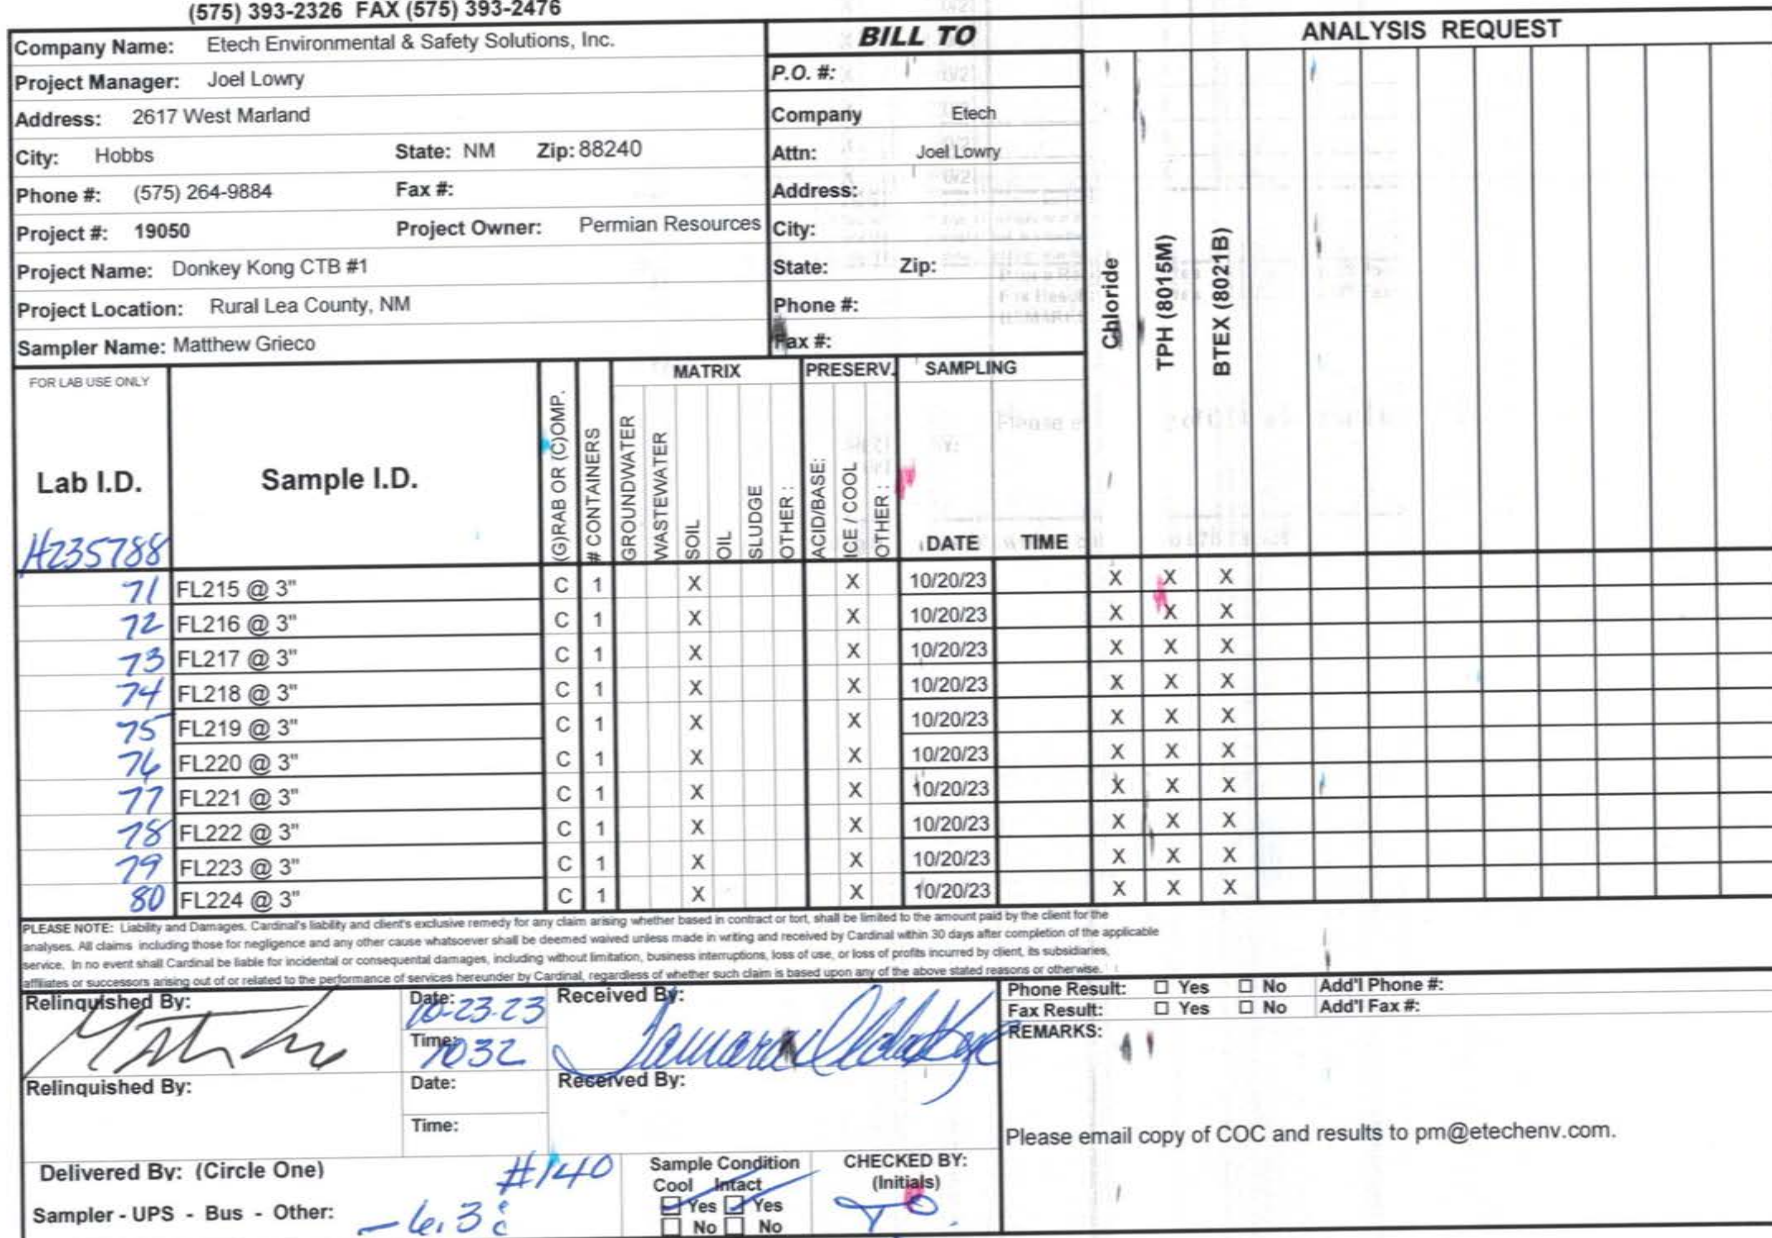 (575) 393-2326 FAX (575) 393-2476
Company Name: Etech Environmental & Safety Solutions, Inc.
BILL TO
ANALYSIS REQUEST
Project Manager: Joel Lowry
P.O. #:
Address: 2617 West Marland
Company Etech
City: Hobbs State: NM Zip: 88240
Attn: Joel Lowry
Phone #: (575) 264-9884 Fax #:
Address:
Project #: 19050 Project Owner: Permian Resources
City:
Project Name: Donkey Kong CTB #1
State: Zip:
Project Location: Rural Lea County, NM
Phone #:
Sampler Name: Matthew Grieco
Fax #:
Chloride
TPH (8015M)
BTEX (8021B)
FOR LAB USE ONLY
MATRIX PRESERV. SAMPLING
Lab I.D.
Sample I.D.
(G)RAB OR (C)OMP.
# CONTAINERS
GROUNDWATER
WASTEWATER
SOIL
OIL
SLUDGE
OTHER :
ACID/BASE:
ICE / COOL
OTHER :
DATE TIME
H235788
71 FL215 @ 3" C 1 X X 10/20/23 X X X
72 FL216 @ 3" C 1 X X 10/20/23 X X X
73 FL217 @ 3" C 1 X X 10/20/23 X X X
74 FL218 @ 3" C 1 X X 10/20/23 X X X
75 FL219 @ 3" C 1 X X 10/20/23 X X X
76 FL220 @ 3" C 1 X X 10/20/23 X X X
77 FL221 @ 3" C 1 X X 10/20/23 X X X
78 FL222 @ 3" C 1 X X 10/20/23 X X X
79 FL223 @ 3" C 1 X X 10/20/23 X X X
80 FL224 @ 3" C 1 X X 10/20/23 X X X
PLEASE NOTE: Liability and Damages. Cardinal's liability and client's exclusive remedy for any claim arising whether based in contract or tort, shall be limited to the amount paid by the client for the
analyses. All claims including those for negligence and any other cause whatsoever shall be deemed waived unless made in writing and received by Cardinal within 30 days after completion of the applicable
service. In no event shall Cardinal be liable for incidental or consequental damages, including without limitation, business interruptions, loss of use, or loss of profits incurred by client, its subsidiaries,
affiliates or successors arising out of or related to the performance of services hereunder by Cardinal, regardless of whether such claim is based upon any of the above stated reasons or otherwise.
Relinquished By:
Date: 10-23-23
Time: 1032
Received By:
Tamara
Phone Result: ☐ Yes ☐ No Add'l Phone #:
Fax Result: ☐ Yes ☐ No Add'l Fax #:
REMARKS:
Relinquished By:
Date:
Time:
Received By:
Please email copy of COC and results to pm@etechenv.com.
Delivered By: (Circle One) #140
Sampler - UPS - Bus - Other: -6.3°c
Sample Condition
Cool Intact
Yes Yes
No No
CHECKED BY:
(Initials)